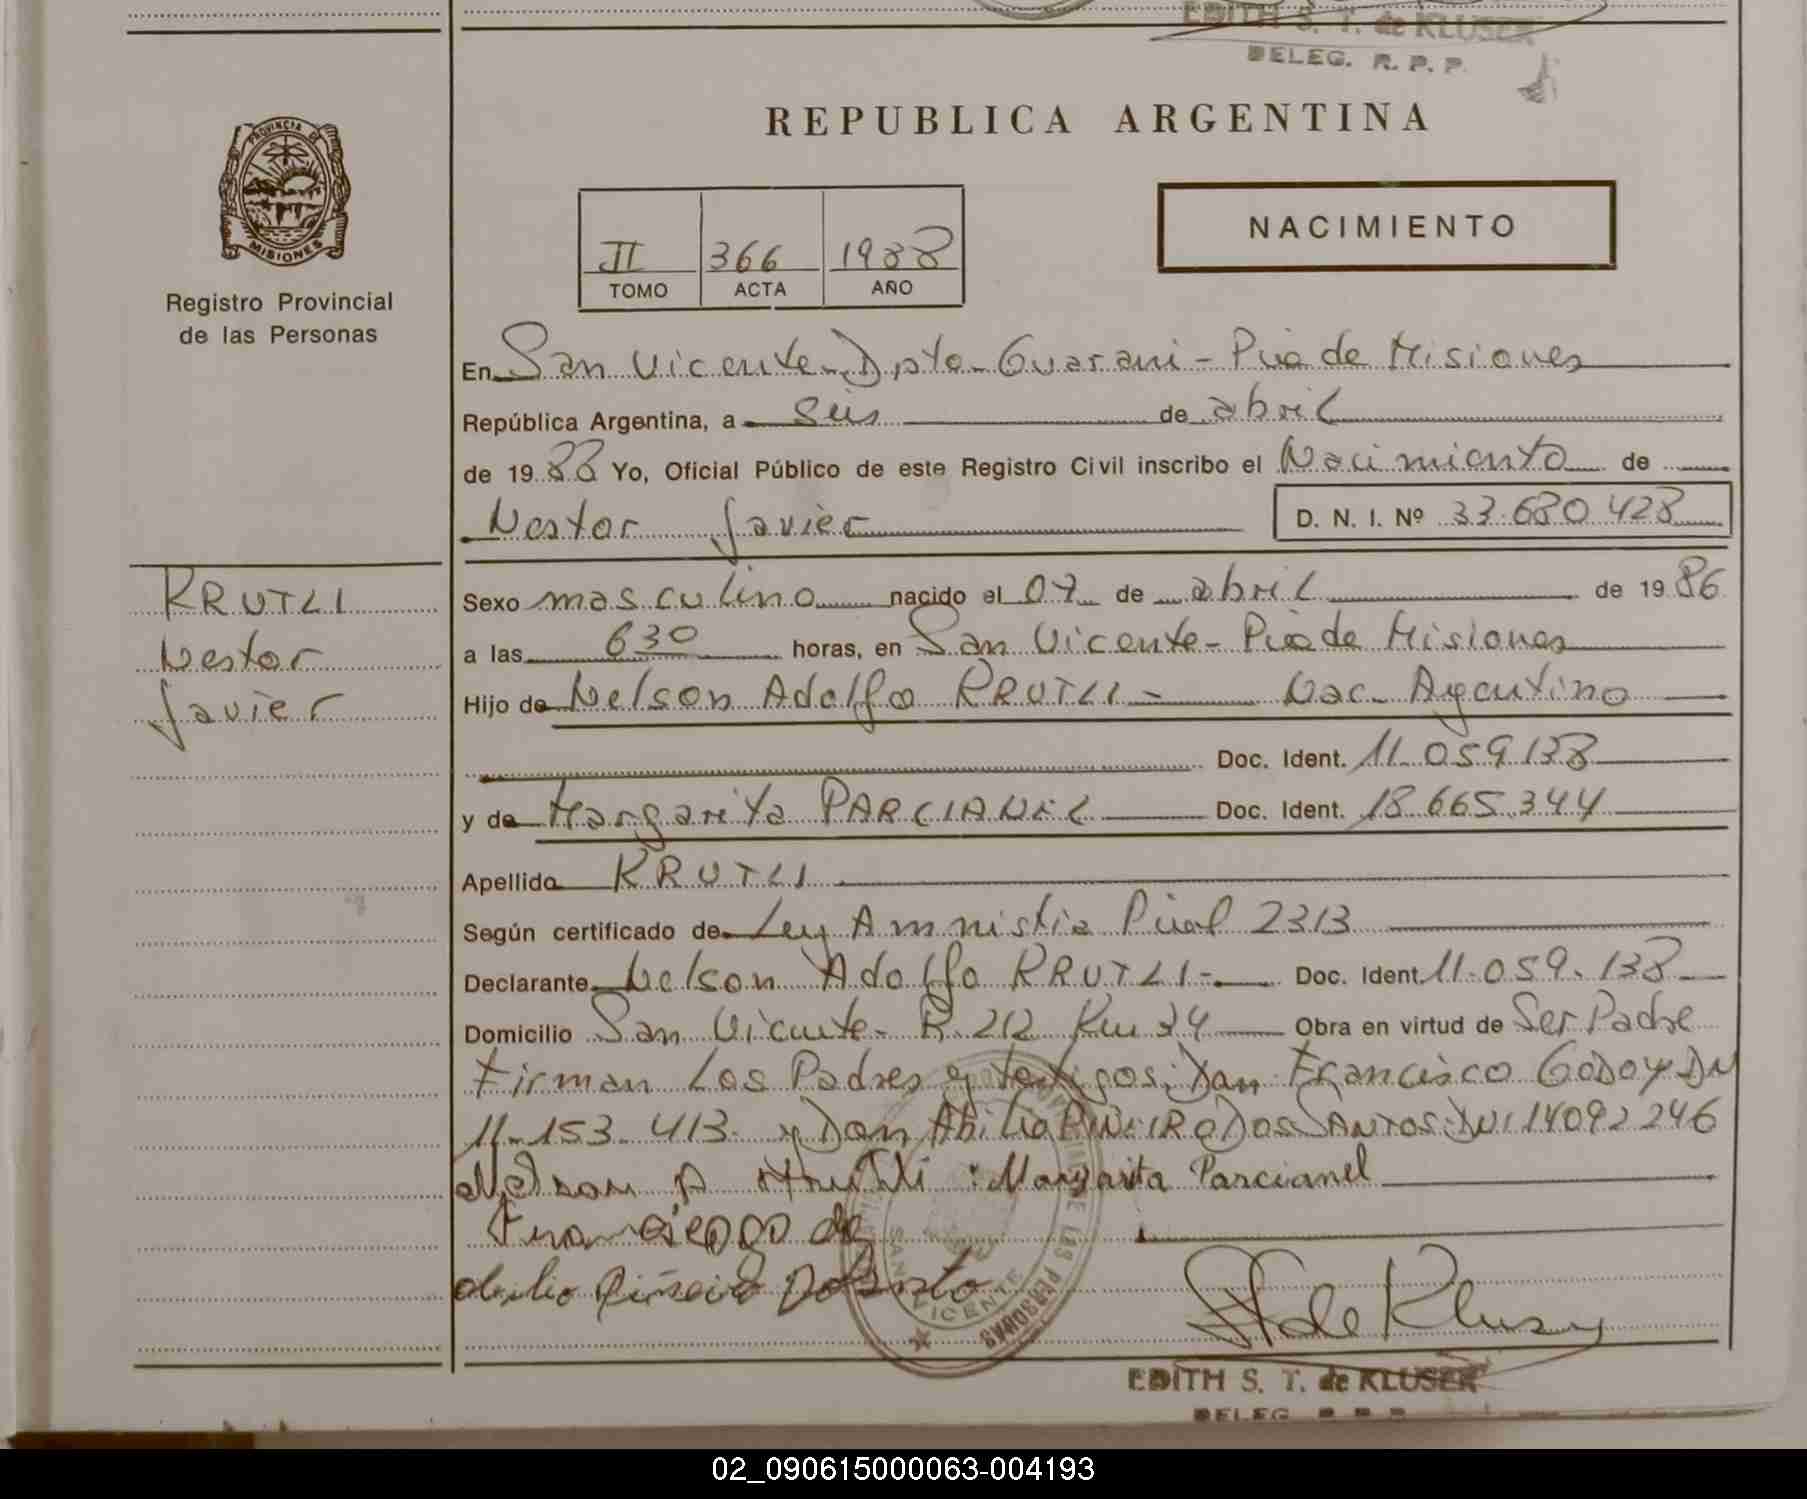 EDITH S. T. de KLUSER
DELEG. R. P. P.
REPUBLICA ARGENTINA
PROVINCIA DE
MISIONES
Registro Provincial
de las Personas
II 366 1988
TOMO ACTA AÑO
NACIMIENTO
En San Vicente - Dpto - Guarani - Pcia de Misiones
República Argentina, a seis de abril
de 1988 Yo, Oficial Público de este Registro Civil inscribo el Nacimiento de
Nestor Javier D. N. I. Nº 33.680.428
KRUTLI
Nestor
Javier
Sexo masculino nacido el 07 de abril de 1986
a las 630 horas, en San Vicente - Pcia de Misiones
Hijo de Nelson Adolfo KRUTLI - Nac. Argentino
Doc. Ident. 11.059.138
y de Margarita PARCIANEL Doc. Ident. 18.665.344
Apellido KRUTLI
Según certificado de Ley Amnistia Pcial 2313
Declarante Nelson Adolfo KRUTLI - Doc. Ident. 11.059.138
Domicilio San Vicente - R. 212 Km 24 Obra en virtud de Ser Padre
Firman Los Padres y testigos: Don Francisco GODOY DNI
11.153.413 y Don Abilio PIÑEIRO DOS SANTOS DNI 14092246
Nelson A Krutli Margarita Parcianel
Abilio Piñeiro Do Santo
SAN VICENTE
DE LAS PERSONAS
EDITH S. T. de KLUSER
DELEG. R. P. P.
02_090615000063-004193